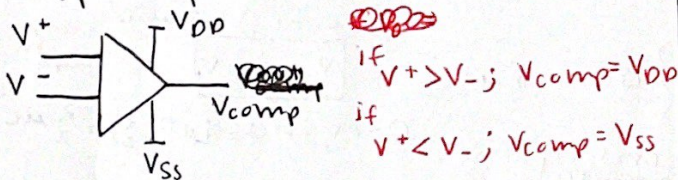 V+
VDD
V-
Vcomp
VSS
if
V+ > V-; Vcomp = VDD
if
V+ < V-; Vcomp = VSS